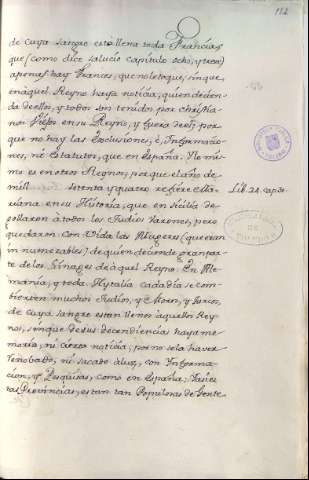 182
de cuya sangre està llena toda Francia;
que (como dice salucio capitulo ocho, y trece)
apenas hay Frances, que no le toque, sin que
en aquel Reyno haya noticia, quien decien-
da de ellos, y todos son tenidos por christia-
nos Viejos en su Reyno, y fuera de el; por
que no hay las Exclusiones, è, Informacio-
nes, ni Estatutos, que en España. Y lo mis-
mo es en otros Reynos, porque el año de
mil setenta y quatro refiere Ma-
Lib. 21. cap.
riana en su Historia, que en Sicilia de-
gollaron à todos los Judios Varones, pero
quedaron con Vida las Mugeres (que eran
innumerables) de quien deciende gran par-
te de los Linages de àquel Reyno. En Ale-
mania, y toda Hytalia cada dia se com-
bierten muchos Judios, y Moros, y Turcos,
de cuya sangre estan llenos àquellos Rey-
nos, sin que de sus decendiencias haya me-
moria, ni cierta noticia; por no se la haver
renobado, ni sacado à luz, con Informa-
cion, y Pesquisas, como en España; Y asi es-
tas Provincias, estan tan Populosas de Gente